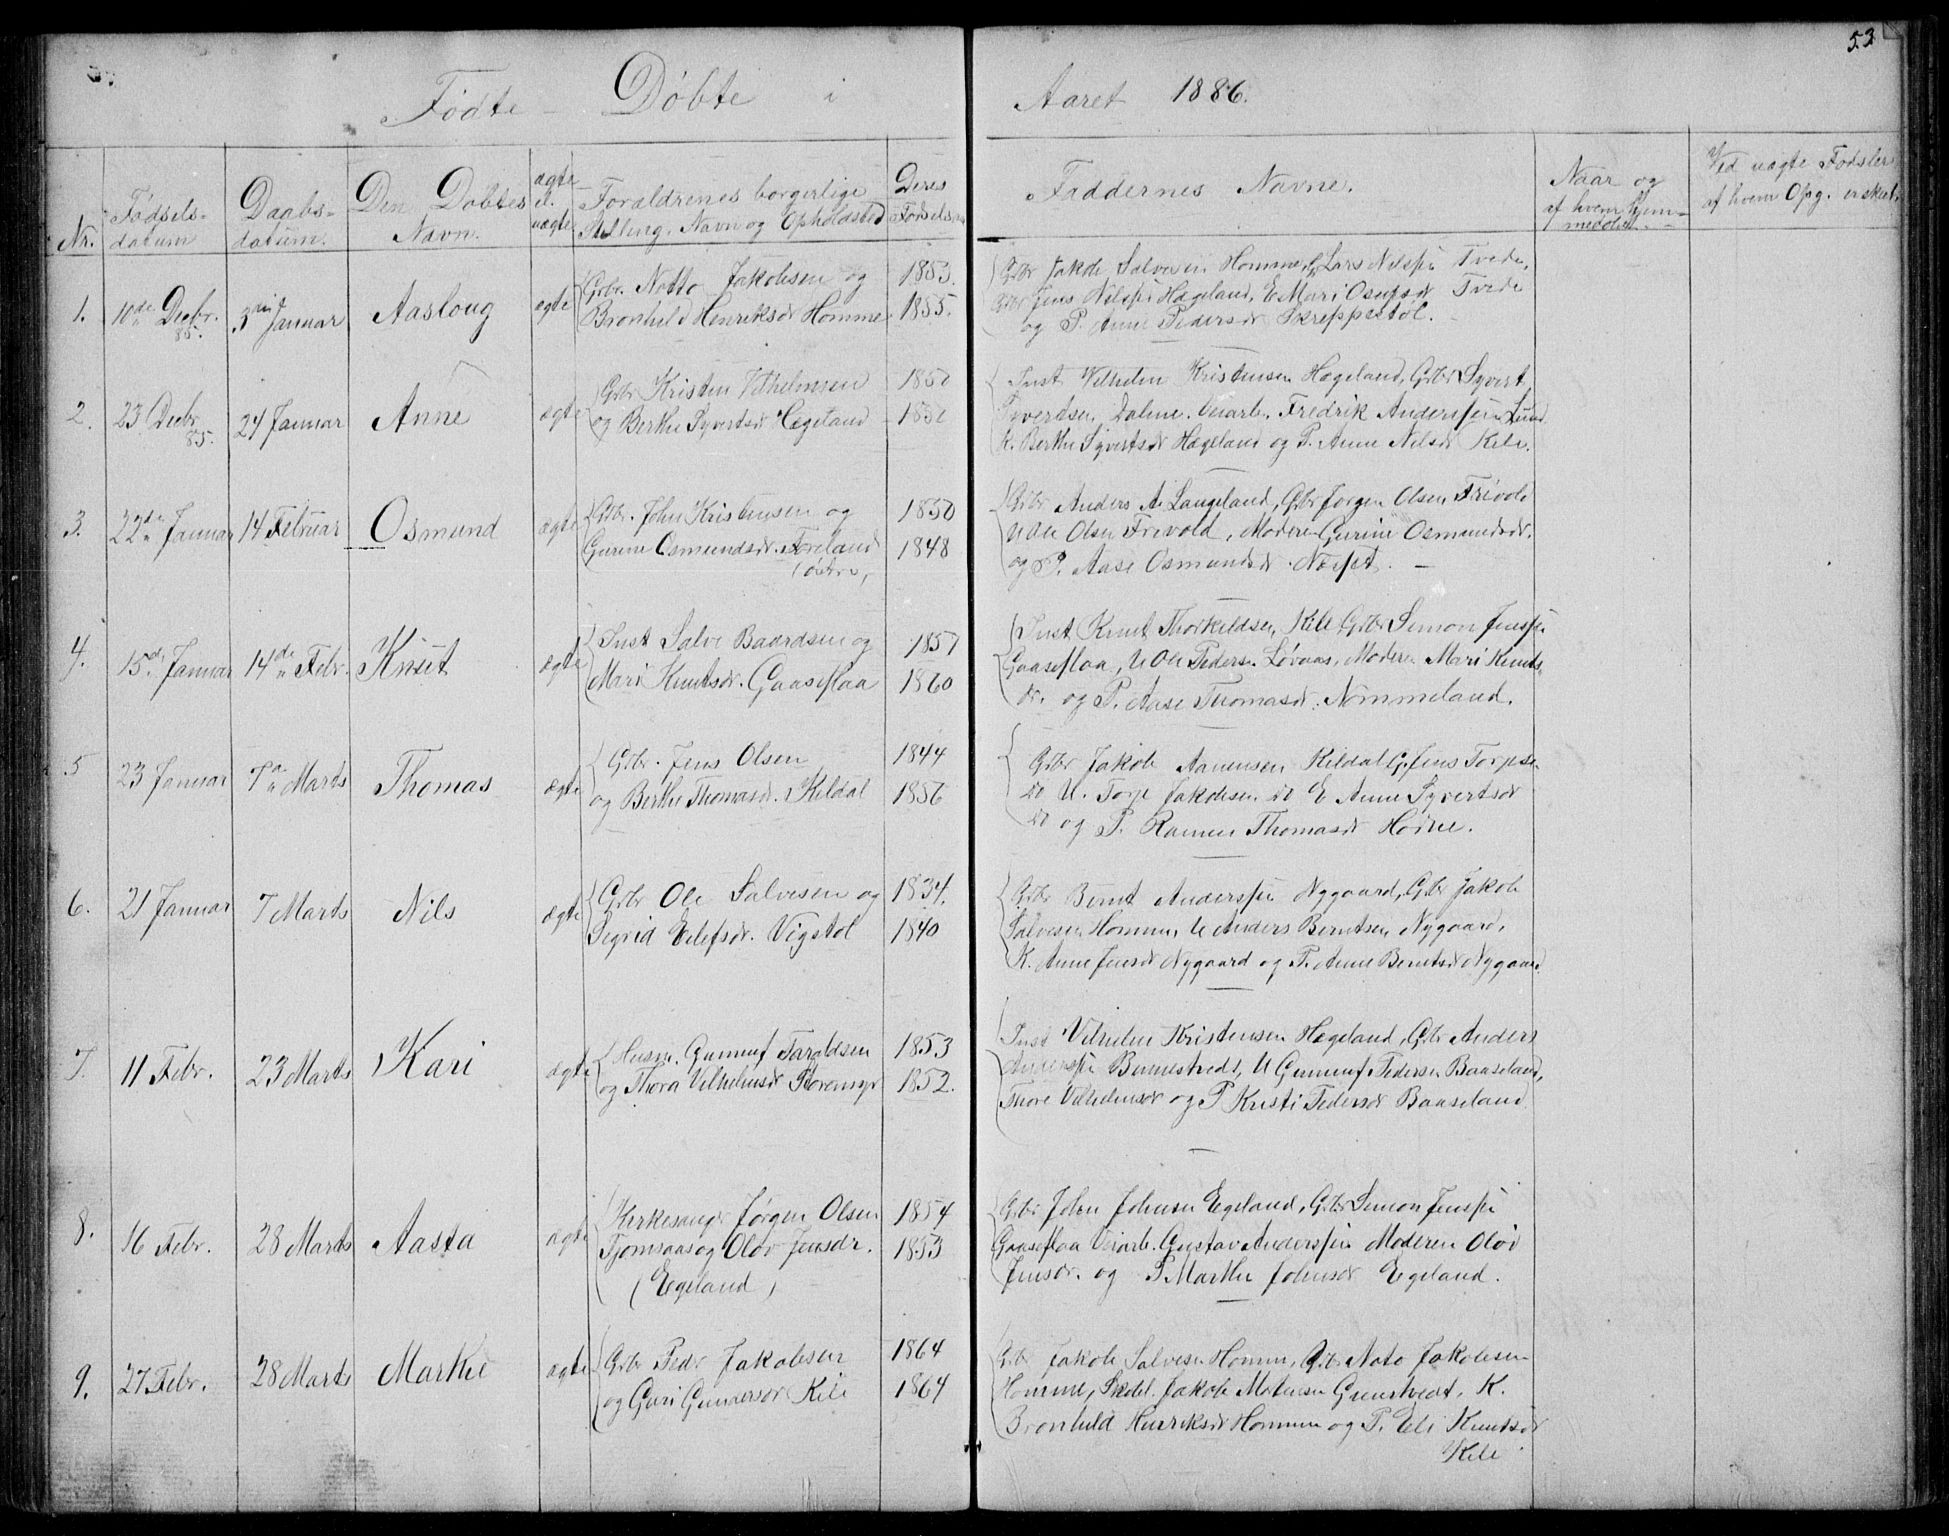 53
Fødte - Døbte i Aaret 1886.
Nr. Fødsels-datum Daabs-datum. Den Døbtes Navn. ægte el. uægte Forældrenes borgerlige Stilling, Navn og Opholdsted Deres Fødselsaar Faddernes Navne. Naar og af hvem hjemmedøbt. Ved uægte Fødsler af hvem Opg. er skeet.
1. 10de Decbr. 85. 3die Januar Aasloug ægte
Gbr. Notto Jakobsen og 1853.
Bronhild Henriksdr Homme. 1855.
Gbr Jakob Salvesen Homme, G Lars Nilssen Tvede,
Gbr Jens Nilssen Hægeland, E Mari Osufsdr Tvede
og P. Anne Pedersdr Skreppestøl.
2. 23 Decbr 85. 24 Januar Anne ægte
Gbr Kristen Vilhelmsen 1850
og Berthe Syvertsdr Hægeland
Inst Vilhelm Kristensen Hægeland, Gbr Syvert
Syvertsen Dalene. Veiarb. Fredrik Anderssen Lund
K. Berthe Syvertsdr Hægeland og P. Anne Nilsdr Kile.
3. 22de Januar 14 Februar Osmund ægte
Gbr. John Kristensen og 1850
Gurine Osmundsdr. Foreland 1848
(østre)
Gbr Anders A. Langeland, Gbr Jørgen Olsen Frivold
U Ole Olsen Frivold, Moderen Gurine Osmundsdr.
og P. Aase Osmundsdr. Næset. -
4. 15de Januar 14de Febr. Knut ægte
Inst Salve Baardsen og 1857
Mari Knutsdr. Gaaseflaa 1860
Inst Knut Thorkildsen Kile Gbr Simon Jenssen
Gaaseflaa, U Ole Pedersen Løvaas, Moderen Mari Knuts-
dr. og P. Aase Thomasdr. Nommeland.
5 23 Januar 7de Marts Thomas ægte
Gbr. Jens Olsen 1844
og Berthe Thomasdr. Kildal 1856
Gbr Jakob Aanensen Kildal G Jens Torjesen
do U. Torje Jakobsen do E Anne Syvertsdr
do og P. Ramen Thomasdr Hodne.
6. 21 Januar 7 Marts Nils ægte
Gbr Ole Salvesen og 1834.
Sigrid Elefsdr. Vigstøl 1840
Gbr Bernt Anderssen Nygaard, Gbr Jakob
Salvesen Homme, U Anders Berntsen Nygaard,
K. Anne Jensdr Nygaard og P. Anne Berntsdr Nygaard
7. 11 Febr. 23 Marts Kari ægte
Husm. Gunnuf Taraldsen 1853
og Thora Vilhelmsdr Storemyr 1852.
Inst Vilhelm Kristensen Hægeland, Gbr Anders
Anderssen Bennestvedt, U Gunnuf Pedersen Baaseland,
Thore Vilhelmsdr og P Kristi Pedersdr Baaseland
8. 16 Febr. 28 Marts Aasta ægte
Kirkesanger Jørgen Olsen 1854
Tjomsaas og Oløv Jensdr. 1853
(Egeland)
Gbr John Johnsen Egeland, Gbr Simon Jenssen
Gaaseflaa Veiarb. Gustav Anderssen Moderen Oløv
Jensdr. og P Marthe Johnsdr Egeland.
9. 27 Febr. 28 Marts Marthe ægte
Gbr Peder Jakobsen 1864
og Guri Gundersdr Kile 1864
Gbr Jakob Salvesen Homme, Gbr Noto Jakobsen
Homme, Skolel. Jakob Mathesen Grenstvedt, K.
Bronhild Henriksdr Homme og P. Eli Knutsdr
Kile